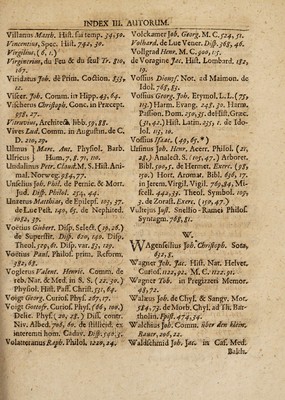 INDEX III. AUTORUM.
Villanus Matth. Hist. sui temp. 34, 50.
Vincentius, Spec. Hist. 742, 30.
Virgilius, (6, 1.)
Virginerius, du Feu & du seul Tr. 810,
167.
Viridatus Joh. de Prim. Coction. 835,
12.
Viseer. Joh. Comm. in Hipp. 43, 64.
Vischerus Christoph. Conc. in Præcept.
358, 27.
Vitruvius, Architect. libb. 59, 88.
Vives Lud. Comm. in Augustin. de C.
D. 210, 29.
Ulmus Marc. Ant. Physiol. Barb.
Ulricus Hum. 7, 8, 71, 110.
Undalinus Petr. Claud. M. S. Hist. Ani-
mal. Norweg. 984, 77.
Unselius Joh. Phil. de Pernic. & Mort.
Jud. Diss. Philol. 254, 44.
Unzerus Matthias, de Epileps. 103, 37.
de Lue Pest. 140, 65. de Nephired.
1082, 37.
Voëtius Gisbert. Disp. Select. (19, 28.)
de Superstit. Disp. 820, 140. Disp.
Theol. 519, 61. Disp. var. 83, 129.
Voëtius Paul. Philol. prim. Reform.
382, 65.
Voglerus Valent. Henric. Comm. de
reb. Nat. & Med. in S. S. (22, 30.)
Physiol. Hist. Pass. Christ. 551, 64.
Voigt Georg. Curios. Phys. 267, 17.
Voigt Gottofr. Curios. Phys. (66, 100.)
Delic. Phys. (20, 28.) Diss. contr.
Niv. Albed. 708, 60. de stillicid. ex
interemti hom. Cadav. Diss. 540, 5.
Volaterranus Raph. Philol. 1220, 24.
Volckamer Joh. Georg. M. C. 524, 51.
Volhard, de Lue Vener. Disp. 365, 46.
Vollgrad Henr. M. C. 900, 15.
de Voragine Jac. Hist. Lombard. 182,
19.
Vossius Dionys. Not. ad Maimon. de
Idol. 765, 83.
Vossius Georg. Joh. Etymol. L. L. (75,
115.) Harm. Evang. 248, 30. Harm.
Passion. Dom. 250, 31. de Hist. Græc.
(50, 42.) Hist. Latin. 235, 1. de Ido-
lol. 115, 10.
Vossius Isaac. (49, 65.*)
Ursinus Joh. Henr. Acerr. Philol. (21,
28.) Analect S. (105, 47.) Arboret.
Bibl. 500, 5. de Hermet. Exerc. (93,
150.) Hort. Aromat. Bibl. 636, 17.
in Jerem. Virgil. Vigil. 769, 84. Mi-
scell. 442, 33. Theol. Symbol. 103,
2. de Zoroast. Exerc. (150, 47.)
Vultejus Just. Snellio-Rames Philos.
Syntagm. 768, 81.
W.
Wagenseilius Joh. Christoph. Sota,
621, 5.
Wagner Joh. Jac. Hist. Nat. Helvet.
Curios. 1122, 91. M. C. 1122, 91.
Wagner Tob. in Pregizeri Memor.
48, 72.
Walæus Joh. de Chyl. & Sangv. Mot.
584, 73. de Morb. Chyl. ad Th. Bar-
tholin. Epist. 474, 54.
Walchius Joh. Comm. über den klein.
Bauer, 206, 22.
Waldschmid Joh. Jac. in Cas. Med.
Balth.